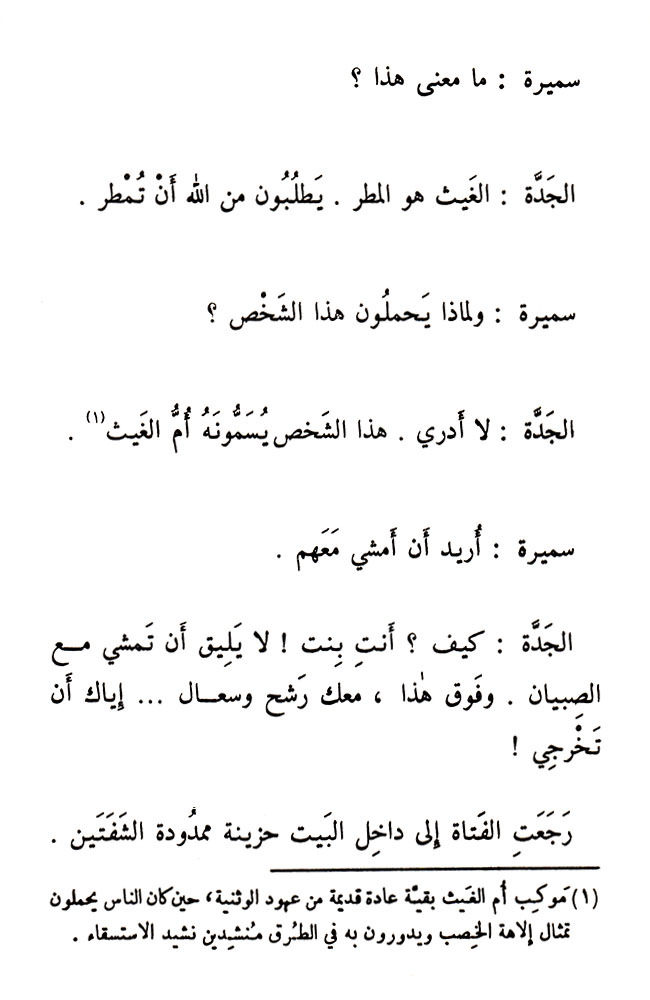 سميرة : ما معنى هذا ؟
الجَدَّة : الغَيث هو المطر . يَطلُبُون من الله أَنْ تُمْطر .
سميرة : ولماذا يَحملُون هذا الشَخْص ؟
الجَدَّة : لا أَدري . هذا الشَخص يُسَمُّونَهُ أُمُّ الغَيث (١) .
سميرة : أُريد أَن أَمشي مَعَهم .
الجَدَّة : كيف ؟ أَنتِ بِنت ! لا يَلِيق أَن تَمشي مـع
الصِبيان . وفَوق هٰذا ، معك رَشح وسعـال ... إِياك أَن
تَخْرجِي !
رَجَعَتِ الفَتاة إِلى داخِل البَيت حزينة ممدُودة الشَفَتَين .
(١) مَوكِب أُم الغَيث بقيَّة عادة قديمة من عهود الوثنية، حين كان الناس يحملون
تمثال إلاهة الخِصب ويدورون به في الطُرق مُنشِدين نشيد الاستسقاء .